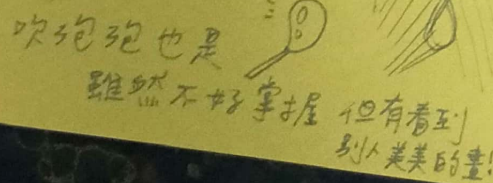 吹泡泡也是
雖然不好掌握 但有看到
別人美美的畫!